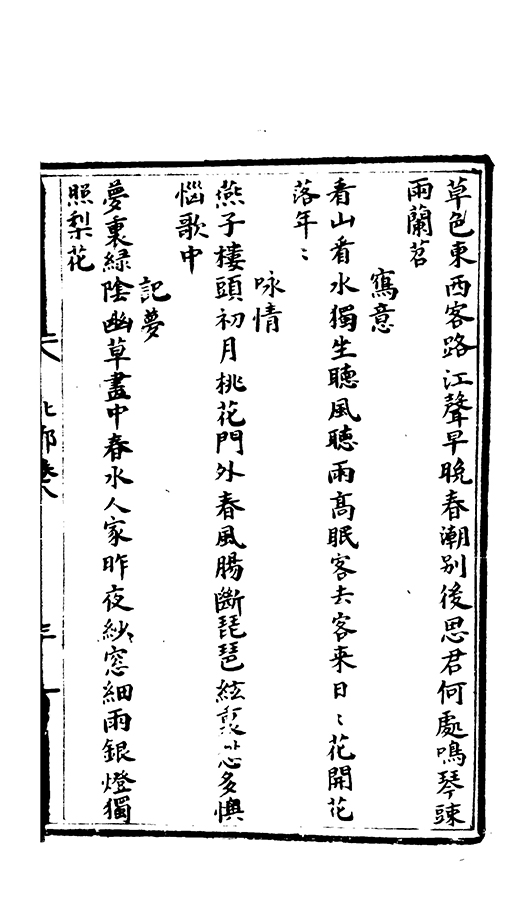 草色東西客路江聲早晚春潮别後思君何處鳴琴踈
雨蘭苕
寫意
看山看水獨生聽風聽雨高眠客去客来日〻花開花
落年〻
咏情
燕子樓頭初月桃花門外春風腸斷琵琶絃裏多懊
惱歌中
記夢
夢裏緑陰幽草畫中春水人家昨夜紗窓細雨銀燈獨
照梨花
北郭